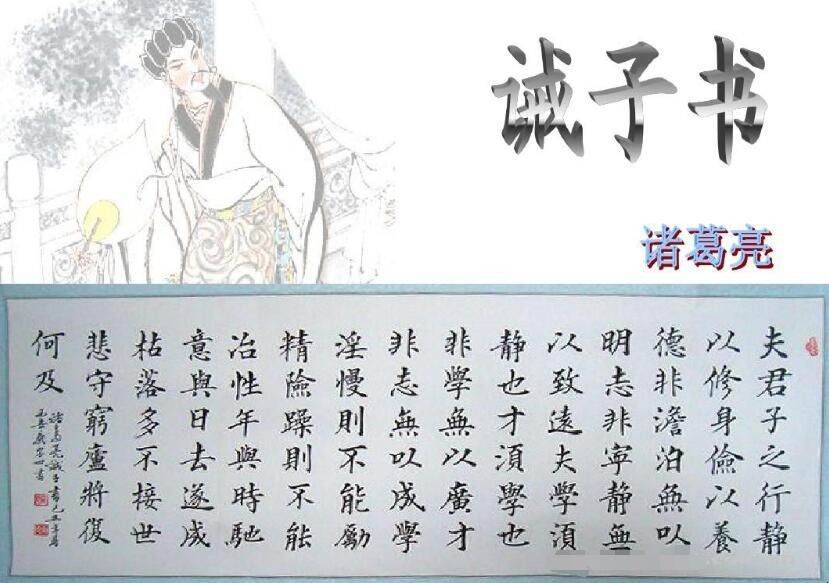 诫子书
诸葛亮
夫君子之行静
以修身儉以養
德非澹泊無以
明志非寧静無
以致遠夫學須
静也才須學也
非學無以廣才
非志無以成學
淫慢則不能勵
精險躁則不能
冶性年與時馳
意與日去遂成
枯落多不接世
悲守窮廬將復
何及
諸葛亮誡子書